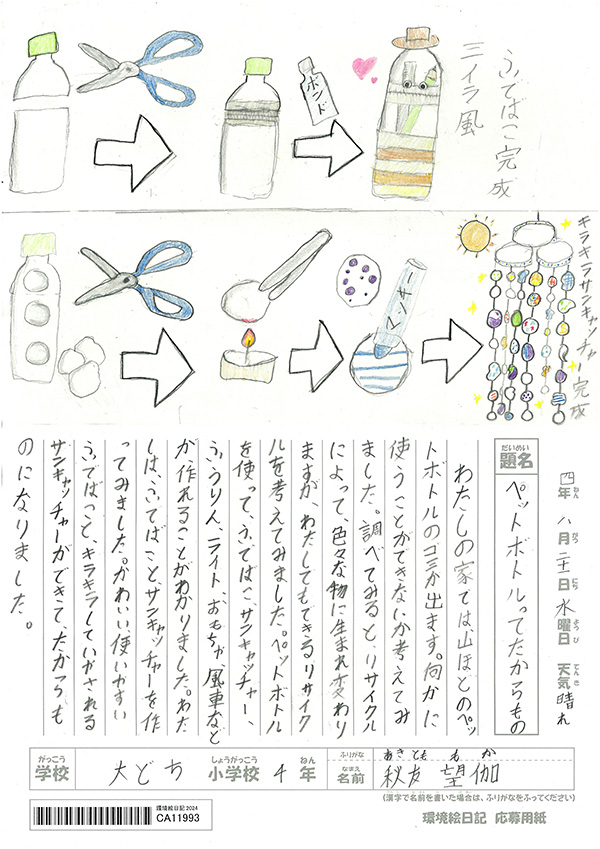 ボンド
ふでばこ完成
ミイラ風
マッキー
キラキラサンキャッチャー完成
四年 八月 二十一日 水曜日 天気 晴れ
ねん がつ にち ようび てんき
だいめい
題名 ペットボトルってたからもの
わたしの家では山ほどのペッ
トボトルのゴミが出ます。何かに
使うことができないか考えてみ
ました。調べてみると、リサイクル
によって、色々な物に生まれ変わり
ますが、わたしでもできるリサイク
ルを考えてみました。ペットボトル
を使って、ふでばこ、サンキャッチャー、
ふうりん、ライト、おもちゃ、風車など
が作れることがわかりました。わた
しは、ふでばこと、サンキャッチャーを作
ってみました。かわいい使いやすい
ふでばこと、キラキラしていやされる
サンキャッチャーができて、たからも
のになりました。
がっこう しょうがっこう ねん
学校 大どち 小学校 4 年
ふりがな あきとも もか
なまえ
名前 秋友 望伽
(漢字で名前を書いた場合は、ふりがなをふってください)
環境絵日記 2024
CA11993
環境絵日記 応募用紙